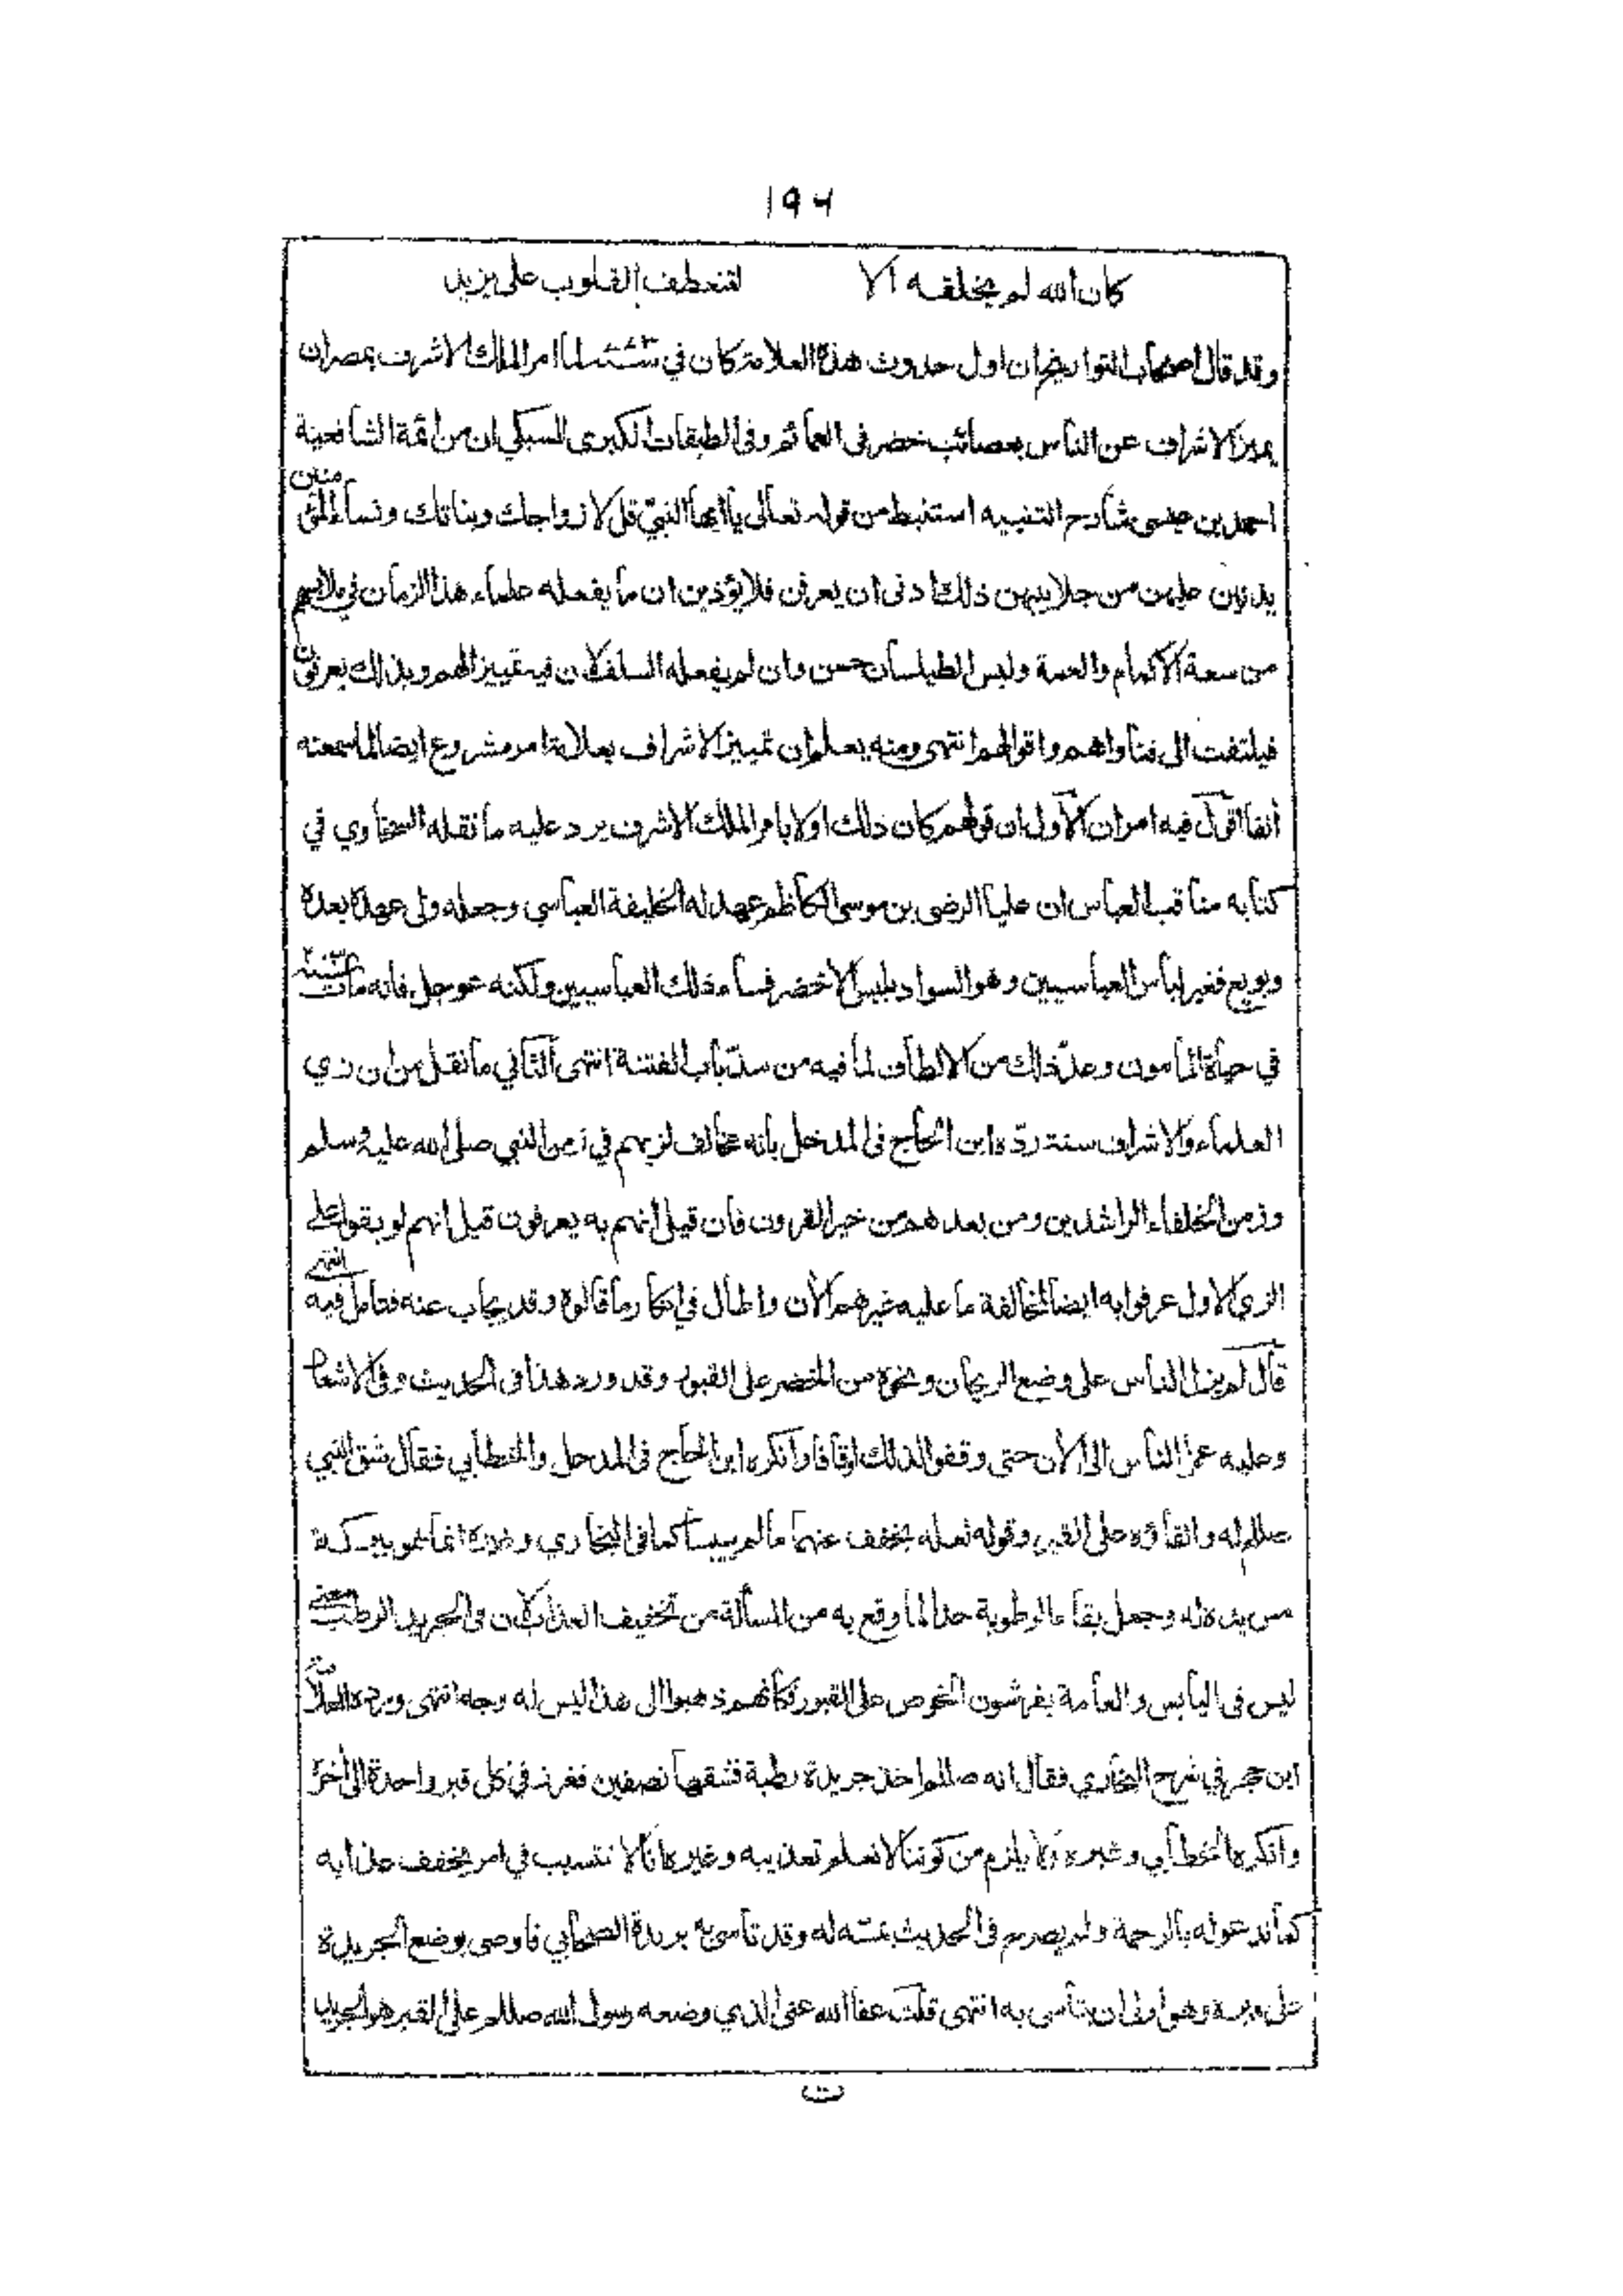 ١٩٤
كان الله لم يخلقه الا لتنعطف القلوب على يزيد
وقد قال اصحاب التواريخ ان اول حدوث هذه العلامة كان في لما امر الملك الاشرف بمصر ان
يميز الاشراف عن الناس بعصائب خضر فى العمائم وفى الطبقات الكبرى للسبكي ان من ائمة الشافعية
احمد بن عيسى شارح التنبيه استنبط من قوله تعالى يا ايها النبيّ قل لازواجك وبناتك ونساء المؤمنين
يدنين عليهن من جلابيبهن ذلك ادنى ان يعرفن فلا يؤذين ان ما يفعله علماء هذا الزمان في ملابسهم
من سعة الاكمام والعمة ولبس الطيلسان حسن وان لم يفعله السلف لان فيه تمييزا لهم وبذلك يعرفون
فيلتفت الى فتاواهم واقوالهم انتهى ومنه يعلم ان تمييز الاشراف بعلامة امر مشروع ايضا لما سمعته
آنفا اقول فيه امران الاول ان قولهم كان ذلك اولا بامر الملك الاشرف يرد عليه ما نقله السخاوي في
كتابه مناقب العباس ان عليا الرضى بن موسى الكاظم عهد له الخليفة العباسي وجعله ولى عهده بعده
وبويع فغير لباس العباسيين وهو السواد بلبس الاخضر فساء ذلك العباسيين ولكنه عوجل فانه مات سنة
في حياة المامون وعدّ ذلك من الالطاف لما فيه من سدّ باب الفتنة انتهى الثاني ما نقل من ان زي
العلماء والاشراف سنة ردّه ابن الحاج فى المدخل بانه مخالف لزيهم في زمن النبي صلى الله عليه وسلم
وزمن الخلفاء الراشدين ومن بعدهم من خير القرون فان قيل انهم به يعرفون قيل انهم لو بقوا على
الزي الاول عرفوا به ايضا لمخالفة ما عليه غيرهم الان واطال في انكار ما قالوه وقد يجاب عنه فتامل فيه انتهى
قال لم يزل الناس على وضع الريحان ونحوه من الخضر على القبور وقد ورد هذا فى الحديث وفى الاشعار
وعليه عمل الناس الى الآن حتى وقفوا لذلك اوقافا وانكره ابن الحاج فى المدخل والخطابي فقال شق النبي
صللم له والقاؤه على القبر وقوله لعله يخفف عنهما ما لم ييبسا كما فى البخاري انما هو ببركة
مس يده له وجعل بقاء الرطوبة حدا لما وقع به من المسألة من تخفيف العذاب لان فى الجريد الرطب معنى
ليس فى اليابس والعامة يفرشون الخوص على القبور فكانهم ذهبوا الى هذا ليس له وجه انتهى ورده العلامة
ابن حجر في شرح البخاري فقال انه صللم اخذ جريدة رطبة فشقها نصفين فغرز في كل قبر واحدة الى آخره
وانكره الخطابي وغيره ولا يلزم من كوننا لا نعلم تعذيبه وغيره انا لا نتسبب في امر يخفف عذابه
كما ندعو له بالرحمة ولم يصرح فى الحديث له وقد تاسى به بريدة الصحابي فاوصى بوضع الجريدة
على قبره وهو اولى ان يتأسى به انتهى قلت عفا الله عني الذي وضعه رسول الله صللم على القبر هو الجريد